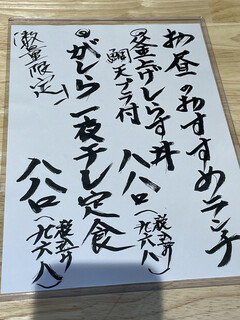 お昼のおすすめランチ
◎釜上げしらす丼
鯛天プラ付
八八〇(税込み九六八)
◎がしら一夜干し定食
数量限定!
八八〇(税込み九六八)